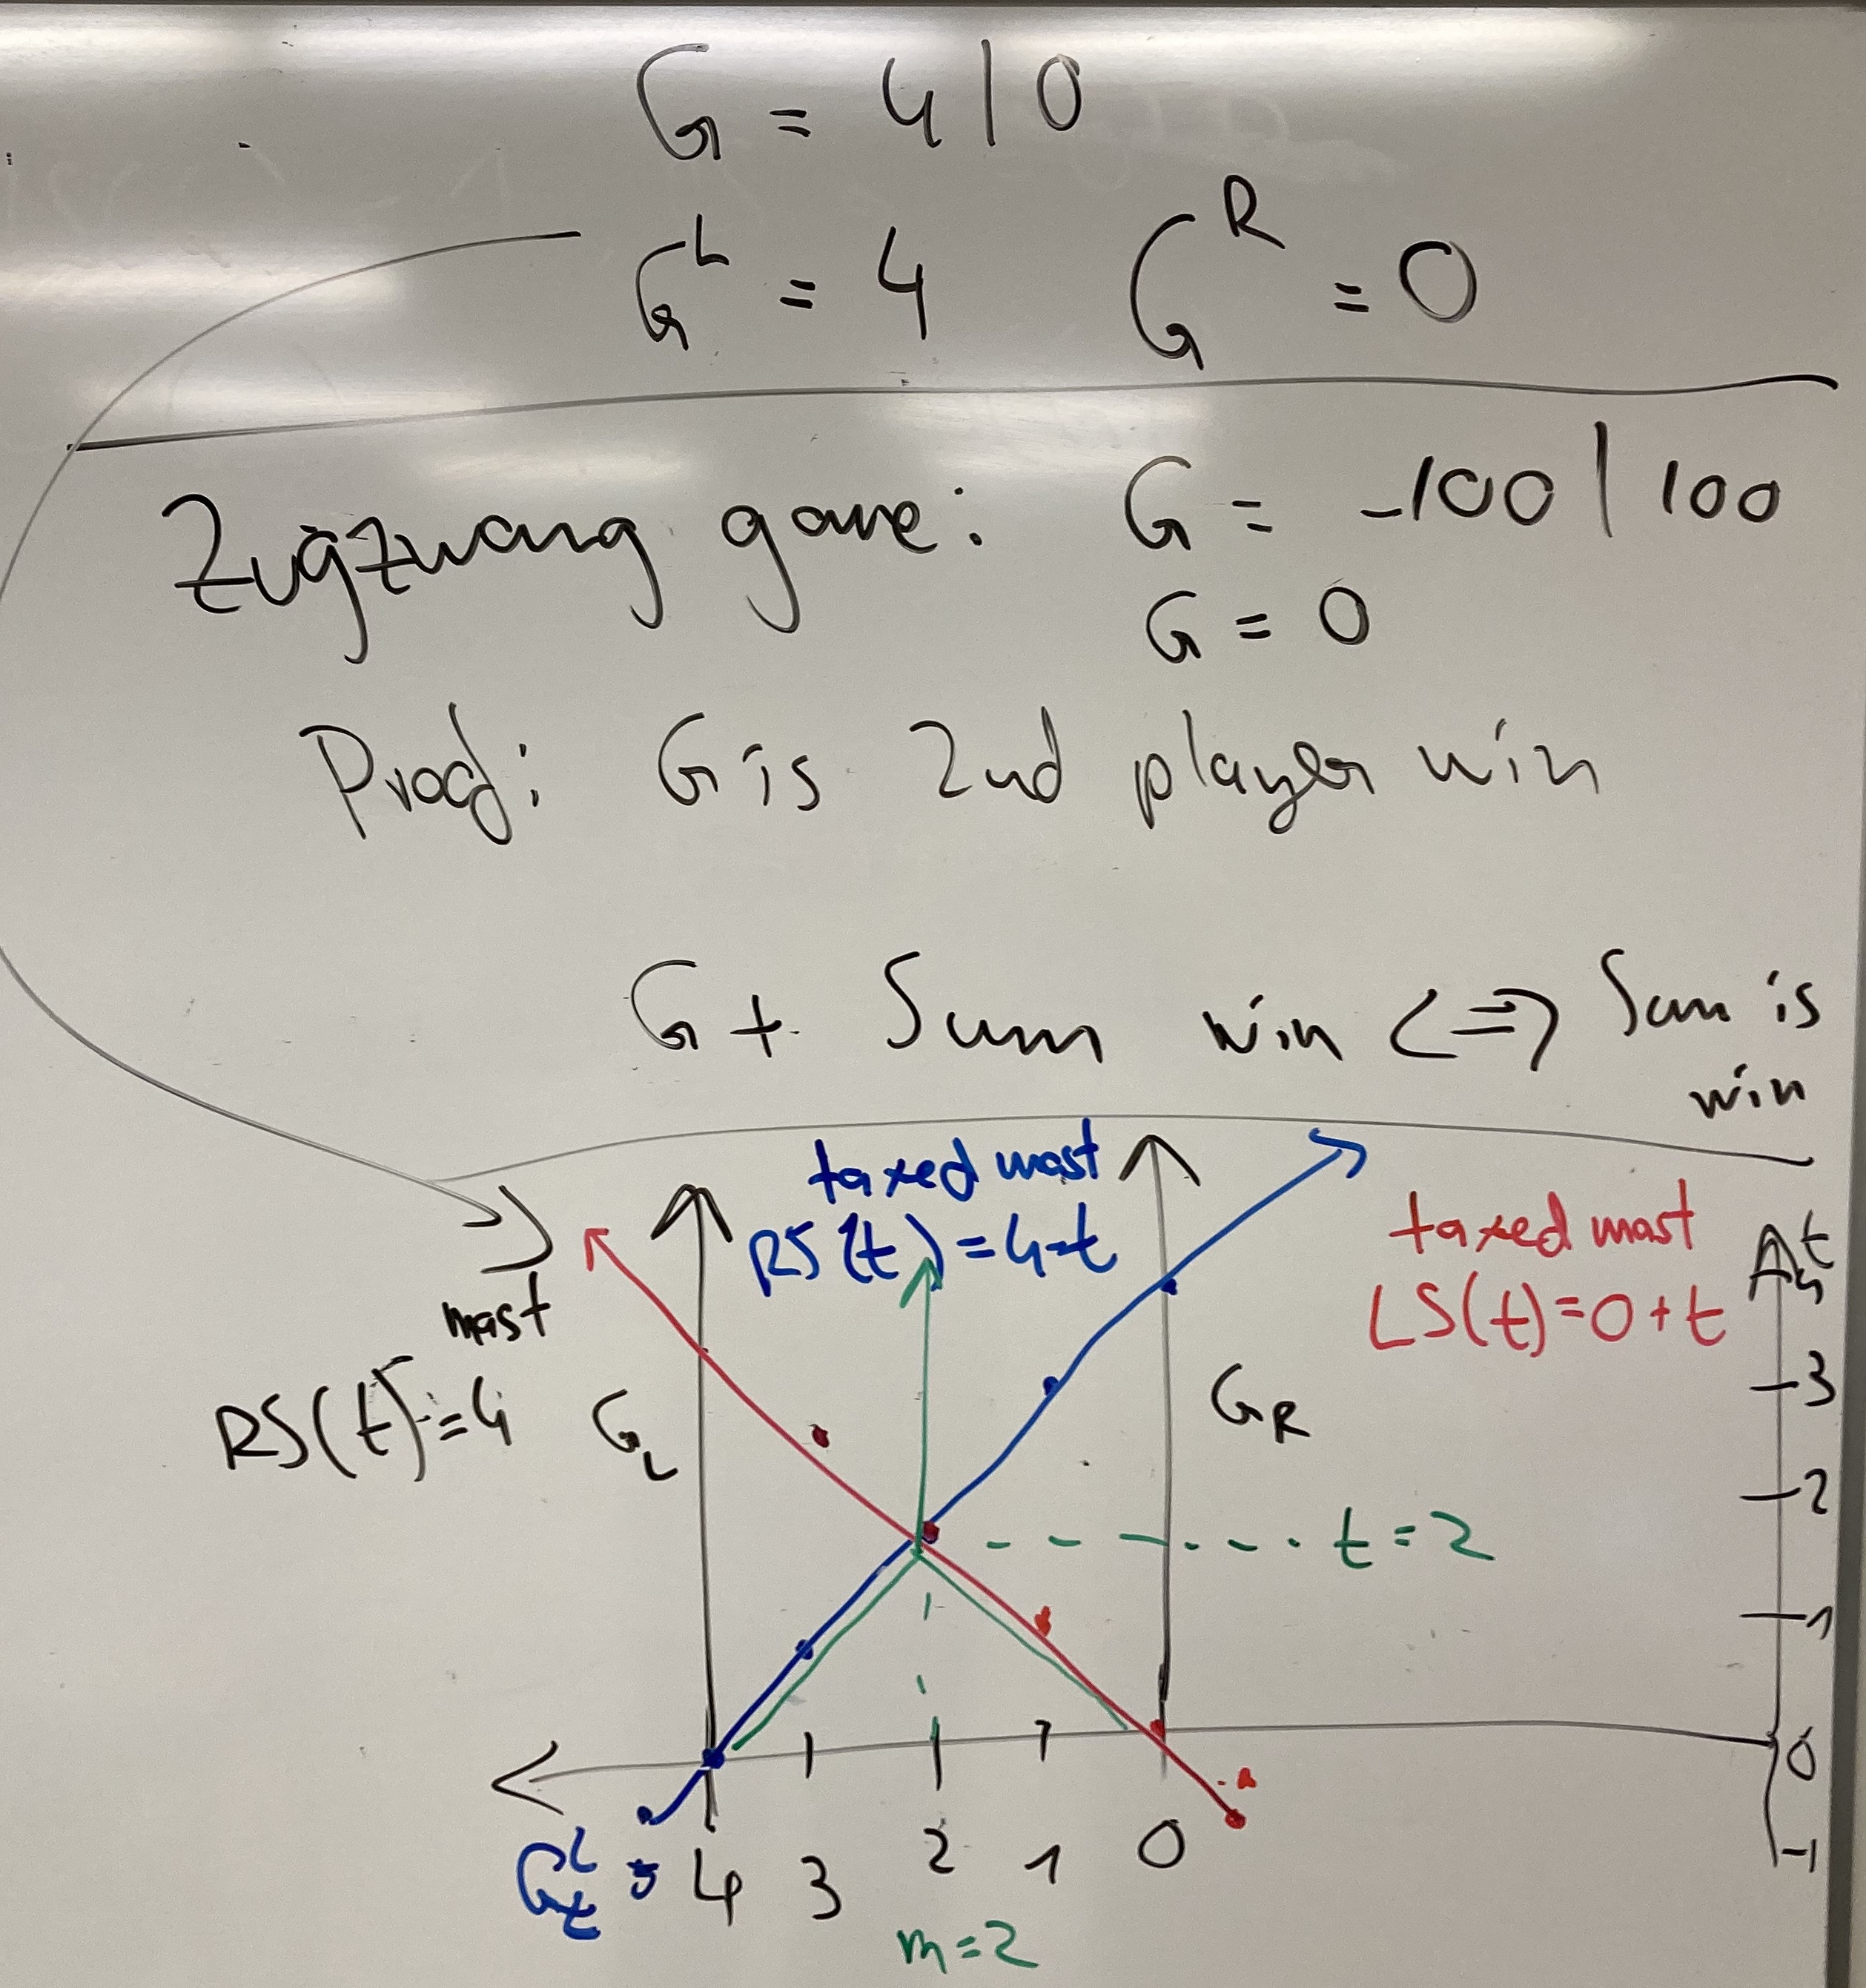 G = 4 | 0
G^L = 4 G^R = 0
Zugzwang game: G = -100 | 100
G = 0
Proof: G is 2nd player win
G + Sum win <=> Sum is
win
taxed mast
RS(t) = 4-t
taxed mast
LS(t) = 0 + t
mast
RS(t) = 4
G_L
G_R
t
4
3
2
t = 2
1
0
-1
G_t^L 5 4 3 2 1 0
m = 2